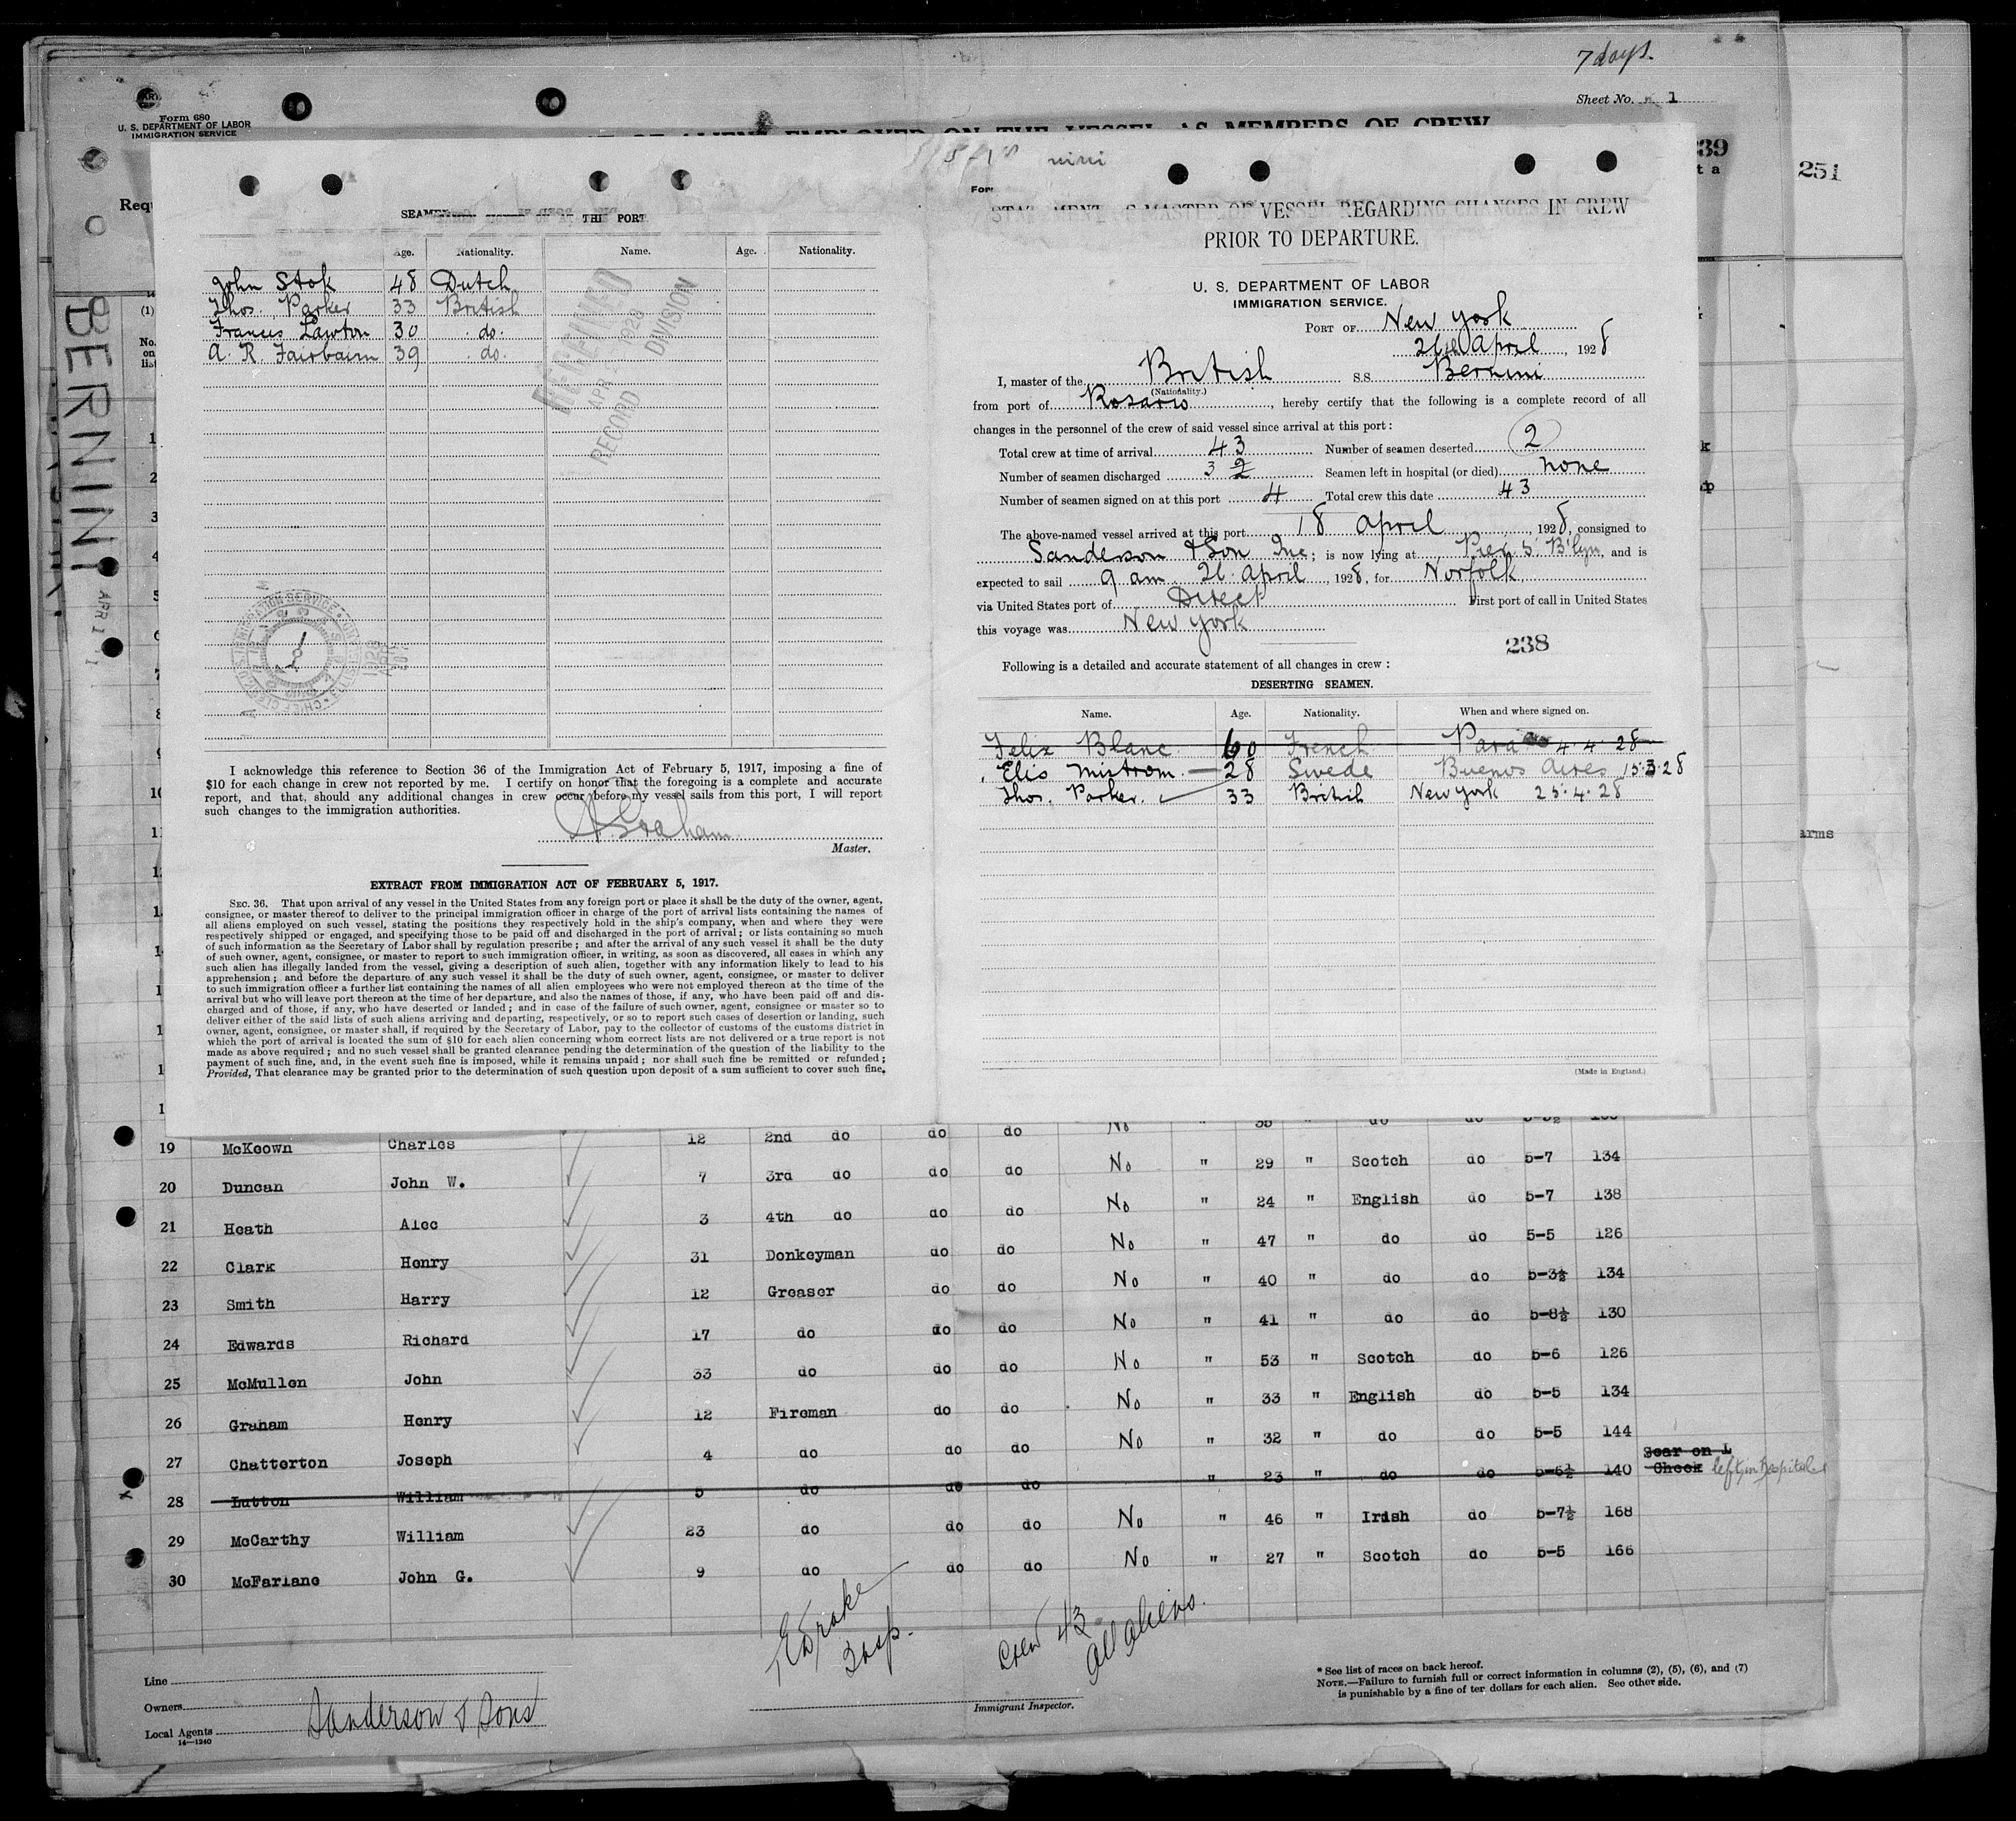 7 days.
Sheet No. 1
Form 680
U. S. DEPARTMENT OF LABOR
IMMIGRATION SERVICE
EMPLOYED ON THE VESSEL AS MEMBERS OF CREW
239
251
BERNINI
APR 1
SEAMEN THIS PORT
Age. Nationality. Name. Age. Nationality.
John Stok 48 Dutch
Thos. Parker 33 British
Frances Lawton 30 do.
A. R. Fairbairn 39 do.
RECEIVED
APR 1928
RECORD DIVISION
I acknowledge this reference to Section 36 of the Immigration Act of February 5, 1917, imposing a fine of
$10 for each change in crew not reported by me. I certify on honor that the foregoing is a complete and accurate
report, and that, should any additional changes in crew occur before my vessel sails from this port, I will report
such changes to the immigration authorities.
Graham
Master.
EXTRACT FROM IMMIGRATION ACT OF FEBRUARY 5, 1917.
SEC. 36. That upon arrival of any vessel in the United States from any foreign port or place it shall be the duty of the owner, agent,
consignee, or master thereof to deliver to the principal immigration officer in charge of the port of arrival lists containing the names of
all aliens employed on such vessel, stating the positions they respectively hold in the ship's company, when and where they were
respectively shipped or engaged, and specifying those to be paid off and discharged in the port of arrival; or lists containing so much
of such information as the Secretary of Labor shall by regulation prescribe; and after the arrival of any such vessel it shall be the duty
of such owner, agent, consignee, or master to report to such immigration officer, in writing, as soon as discovered, all cases in which any
such alien has illegally landed from the vessel, giving a description of such alien, together with any information likely to lead to his
apprehension; and before the departure of any such vessel it shall be the duty of such owner, agent, consignee, or master to deliver
to such immigration officer a further list containing the names of all alien employees who were not employed thereon at the time of the
arrival but who will leave port thereon at the time of her departure, and also the names of those, if any, who have been paid off and dis-
charged and of those, if any, who have deserted or landed; and in case of the failure of such owner, agent, consignee or master so to
deliver either of the said lists of such aliens arriving and departing, respectively, or so to report such cases of desertion or landing, such
owner, agent, consignee, or master shall, if required by the Secretary of Labor, pay to the collector of customs of the customs district in
which the port of arrival is located the sum of $10 for each alien concerning whom correct lists are not delivered or a true report is not
made as above required; and no such vessel shall be granted clearance pending the determination of the question of the liability to the
payment of such fine, and, in the event such fine is imposed, while it remains unpaid; nor shall such fine be remitted or refunded;
Provided, That clearance may be granted prior to the determination of such question upon deposit of a sum sufficient to cover such fine.
MASTER OF VESSEL REGARDING CHANGES IN CREW
PRIOR TO DEPARTURE.
U. S. DEPARTMENT OF LABOR
IMMIGRATION SERVICE.
PORT OF New York
26th April, 1928
I, master of the British S.S. Bernini
(Nationality.)
from port of Rosario, hereby certify that the following is a complete record of all
changes in the personnel of the crew of said vessel since arrival at this port:
Total crew at time of arrival 43 Number of seamen deserted 2
Number of seamen discharged 3 2 Seamen left in hospital (or died) none
Number of seamen signed on at this port 4 Total crew this date 43
The above-named vessel arrived at this port 18 April, 1928, consigned to
Sanderson & Son Inc; is now lying at Pier 5 B'lyn, and is
expected to sail 9 am 26 April, 1928, for Norfolk
via United States port of Direct First port of call in United States
this voyage was New York
238
Following is a detailed and accurate statement of all changes in crew:
DESERTING SEAMEN.
Name. Age. Nationality. When and where signed on.
Felix Blanc 60 French Para 4.4.28
Elis Mistrom 28 Swede Buenos Aires 15.3.28
Thos. Parker. 33 British New York 25.4.28
(Made in England.)
arms
19 McKeown Charles 12 2nd do do do No " 29 " Scotch do 5-7 134
20 Duncan John W. 7 3rd do do do No " 24 " English do 5-7 138
21 Heath Alec 3 4th do do do No " 47 " do do 5-5 126
22 Clark Henry 31 Donkeyman do do No " 40 " do do 5-3½ 134
23 Smith Harry 12 Greaser do do No " 41 " do do 5-8½ 130
24 Edwards Richard 17 do do do No " 53 " Scotch do 5-6 126
25 McMullen John 33 do do do No " 33 " English do 5-5 134
26 Graham Henry 12 Fireman do do No " 32 " do do 5-5 144
27 Chatterton Joseph 4 do do do " 23 " do do 5-6½ 140 Scar on L Cheek left in hospital
28 Lutton William 5 do do do
29 McCarthy William 23 do do do No " 46 " Irish do 5-7½ 168
30 McFarlane John G. 9 do do do No " 27 " Scotch do 5-5 166
Drake
Insp.
Crew 43
All Aliens.
Line
Owners
Local Agents Sanderson & Sons
14—1240
Immigrant Inspector.
* See list of races on back hereof.
NOTE.—Failure to furnish full or correct information in columns (2), (5), (6), and (7)
is punishable by a fine of ten dollars for each alien. See other side.